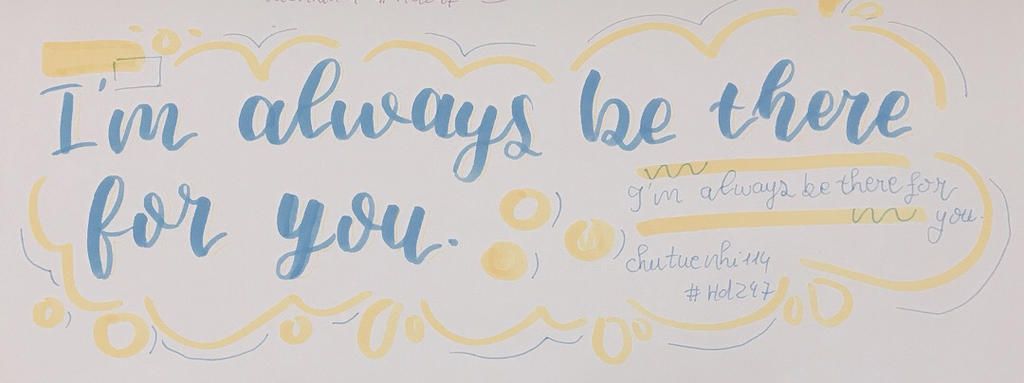 I'm always be there
for you.
I'm always be there for
you.
chutuenhi114
#Hd247